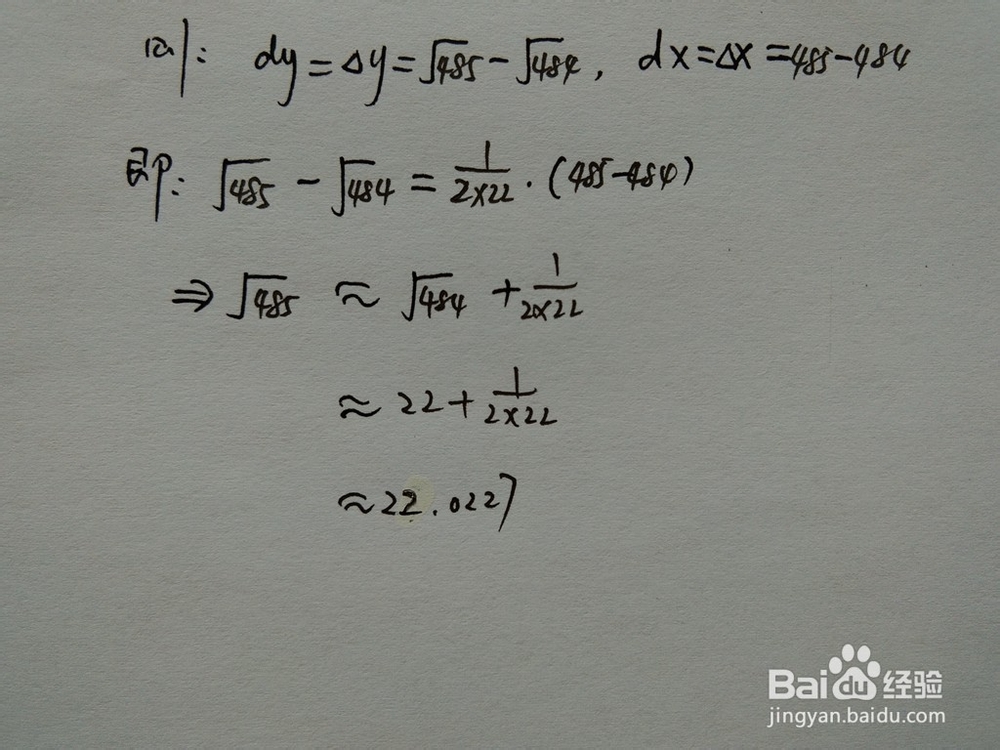 则: dy=Δy=√485-√484, dx=Δx=485-484
即: √485-√484=1/(2×22)·(485-484)
⇒√485≈√484+1/(2×22)
≈22+1/(2×22)
≈22.0227
Baidu经验
jingyan.baidu.com